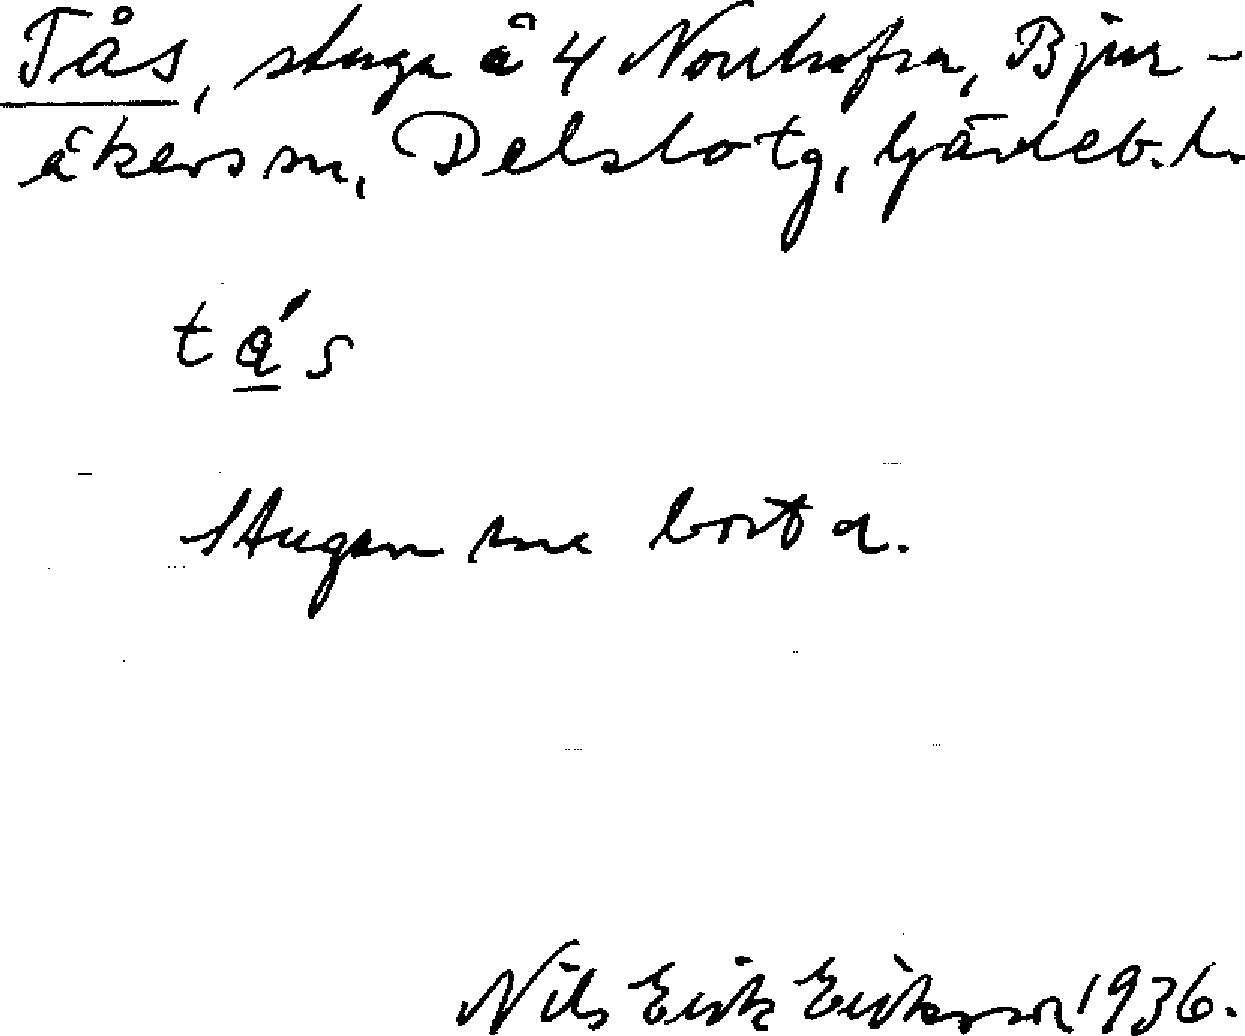 Tås, stuga å 4 Norrhofra, Bjur-
åkers sn, Delsbo tg, Gävleb. l.
tå's
Stugan nu borta.
Nils Erik Eriksson 1936.